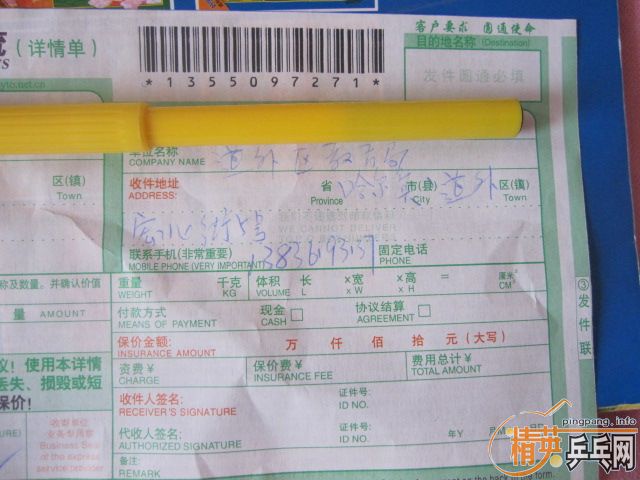 客户要求 圆通使命
流 (详情单)
目的地名称 (Destination)
发件圆通必填
yto.net.cn
*1355097271*
单位名称
COMPANY NAME 道外区教育局
区(镇)
Town
收件地址 省 哈尔滨 市(县) 道外 区(镇)
ADDRESS: Province City Town
联系手机(非常重要) 固定电话
MOBILE PHONE (VERY IMPORTANT) PHONE
称及数量。并确认价值
重量 千克 体积 长 ×宽 ×高 = 厘米³
WEIGHT KG VOLUME L × W × H CM³
量 AMOUNT
付款方式 现金 协议结算
MEANS OF PAYMENT CASH AGREEMENT
保价金额: 万 仟 佰 拾 元 (大写)
INSURANCE AMOUNT
③发件联
议!使用本详情
丢失、损毁或短
保价!
资费¥ 保价费¥ 费用总计¥
CHARGE INSURANCE FEE TOTAL AMOUNT
收件人签名: 证件号:
RECEIVER'S SIGNATURE ID NO.
收寄单位
业务专用章
Business Seal
of the express
service provider
代收人签名: 证件号:
AUTHORIZED SIGNATURE ID NO. 年Y
备注:
REMARK
pingpang.info
精英乒乓网